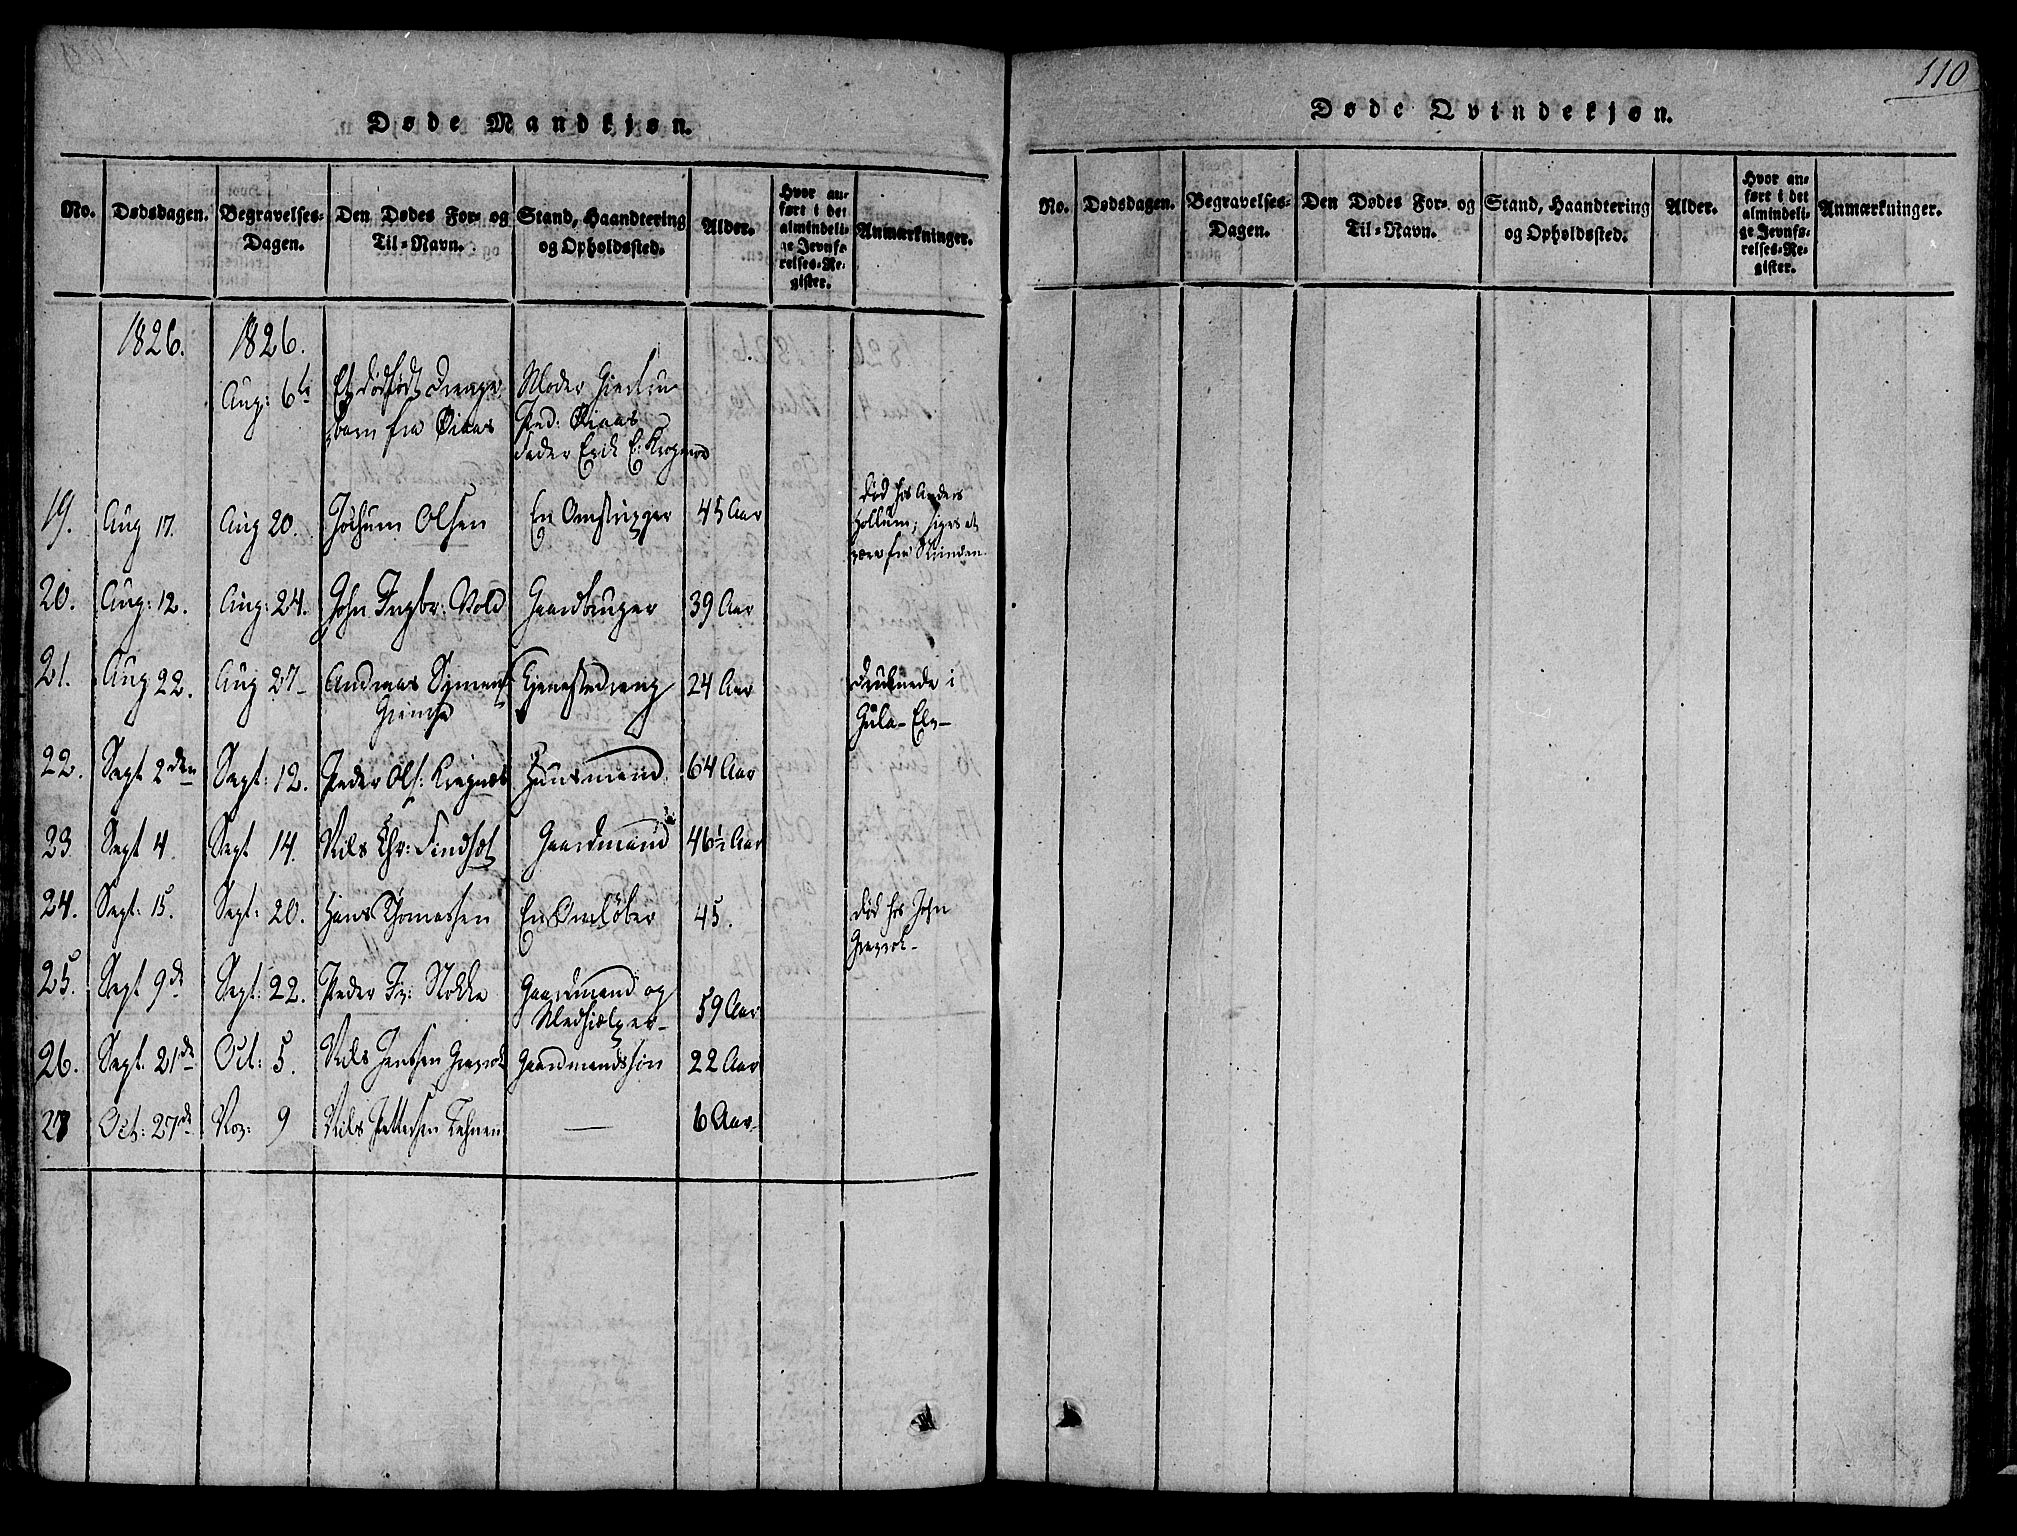 110
Døde Mandkjøn.
No. Dødsdagen. Begravelses-Dagen. Den Dødes For- og Til-Navn. Stand, Haandtering og Opholdssted. Alder. Hvor anført i det almindelige Jevnførelses-Register. Anmærkninger.
1826. 1826.
Aug: 6te Et dødfødt Drenge- Moder
barn fra Øiaas Ped: Øiaas
Fader Erik E:
død hos Anders
19. Aug 17. Aug 20. Jochum Olsen En Omstripper 45 Aar Hollum; siges at
være fra
20. Aug: 12. Aug: 24. John Ingbr: Vold Gaardbruger 39 Aar
21. Aug 22. Aug 27- Andreas Simens: Tjenestedreng 24 Aar druknede i
Gimse Gula-Elv-
22. Sept 2den Sept: 12. Peder Ols: Kregnæs Huusmand 64 Aar
23 Sept 4. Sept 14. Nils Chr: Findsæt Gaardmand 46½ Aar
24. Sept: 15. Sept: 20. Hans Thomassen En Omløber 45. død hos John
25. Sept 9de Sept: 22. Peder Gaardmand og
Medhiælper- 59 Aar
26. Sept: 21de Oct: 5. Nils Jensen Gaardmandssøn 22 Aar
27 Oct: 27de Nov: 9 Nils Pettersen — 6 Aar-
Døde Qvindekjøn.
No. Dødsdagen. Begravelses-Dagen. Den Dødes For- og Til-Navn. Stand, Haandtering og Opholdssted. Alder. Hvor anført i det almindelige Jevnførelses-Register. Anmærkninger.